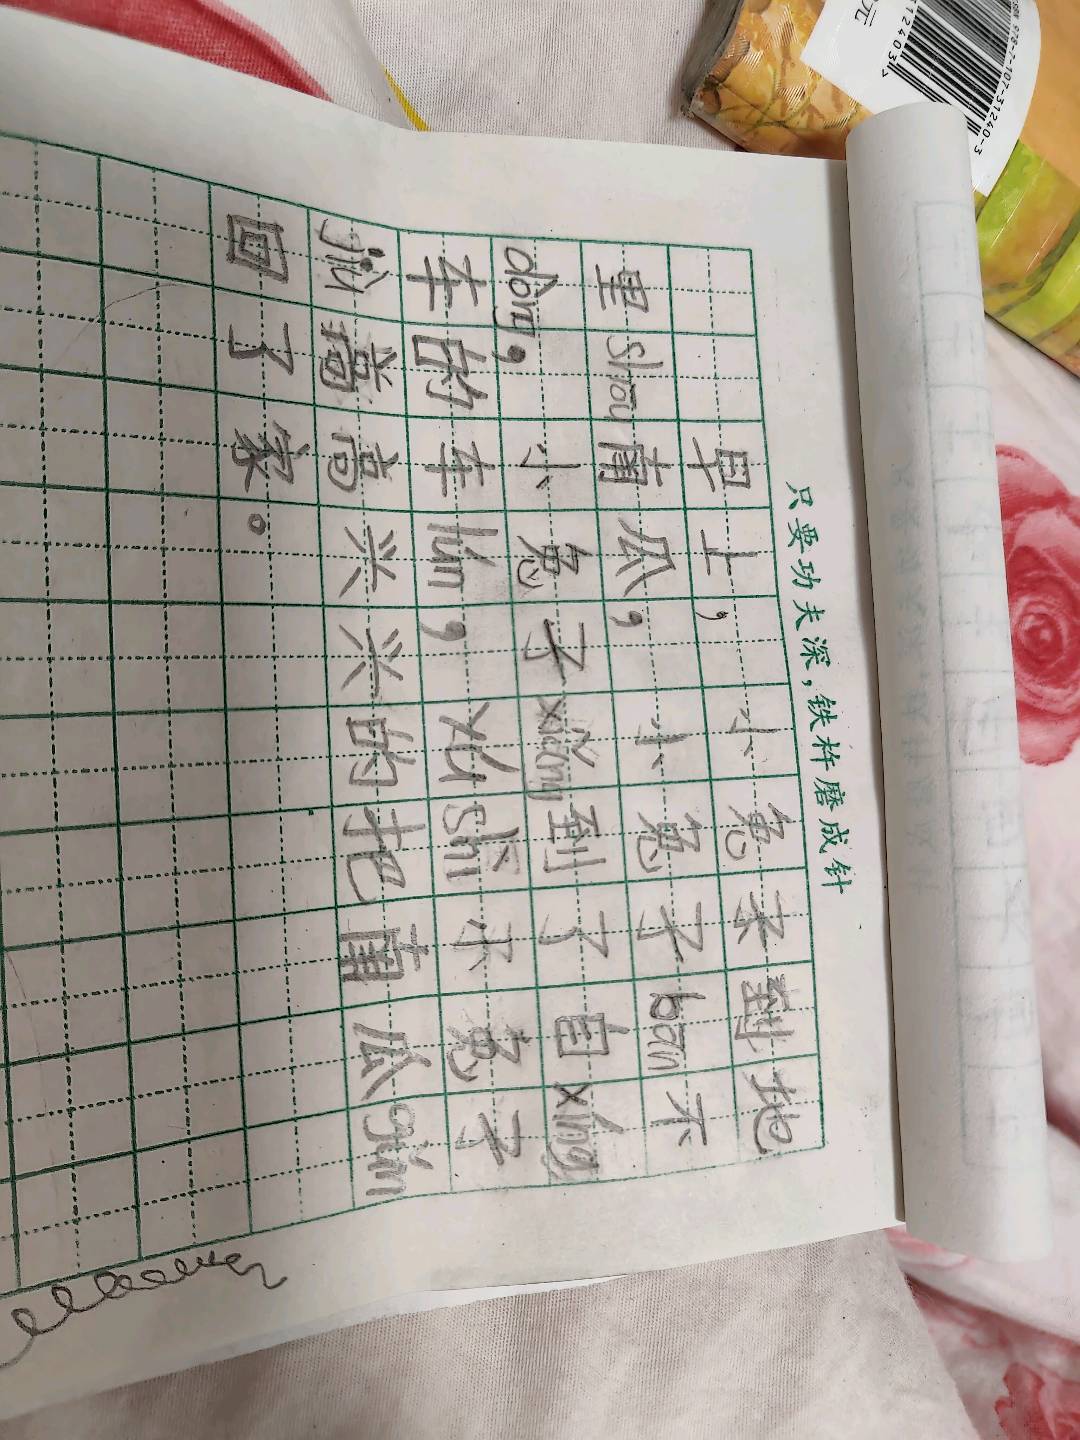 只要功夫深，铁杵磨成针
早上，小兔子到地
里shōu南瓜，小兔子bān不
dòng，小兔子xiǎng到了自xíng
车的车lún，yúshì小兔子
jiù高高兴兴的把南瓜gǔn
回了家。
978-7-107-31240-3
12403>
元